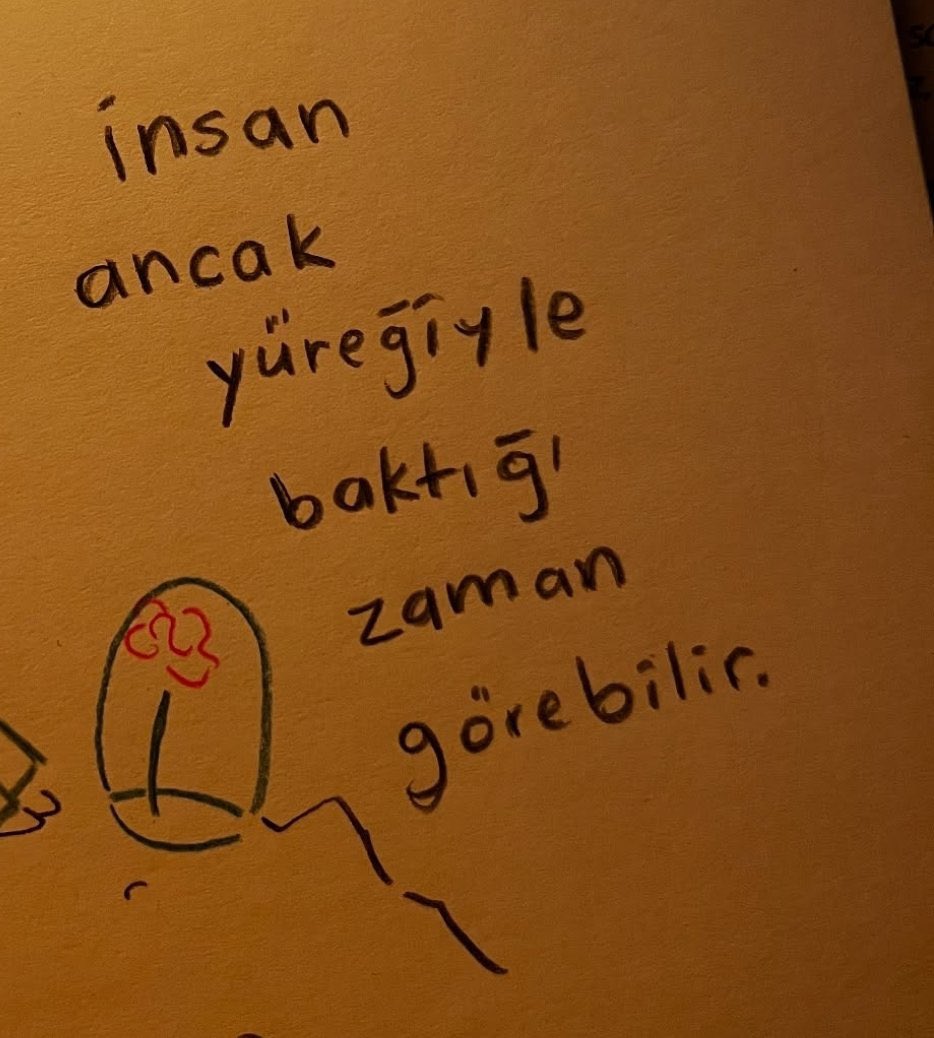 insan
ancak
yüreğiyle
baktığı
zaman
görebilir.